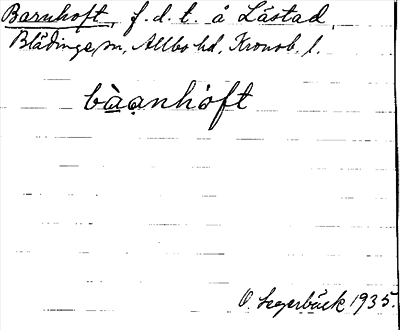 Barnhoft, f.d.t. å Låstad,
Blädinge sn, Allbo hd, Kronob. l.
bàanhòft
O. Segerbäck 1935.